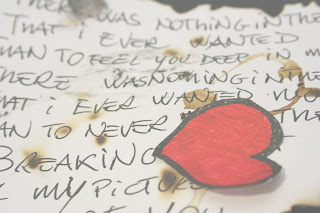 THERE WAS NOTHING IN THE
THAT i EVER WANTED
THAN TO FEEL YOU DEEP IN M
THERE WAS NOTHING IN THE
HAT i EVER WANTED MO
AN TO NEVER THE
BREAKING
MY PICTURE
OF YOU